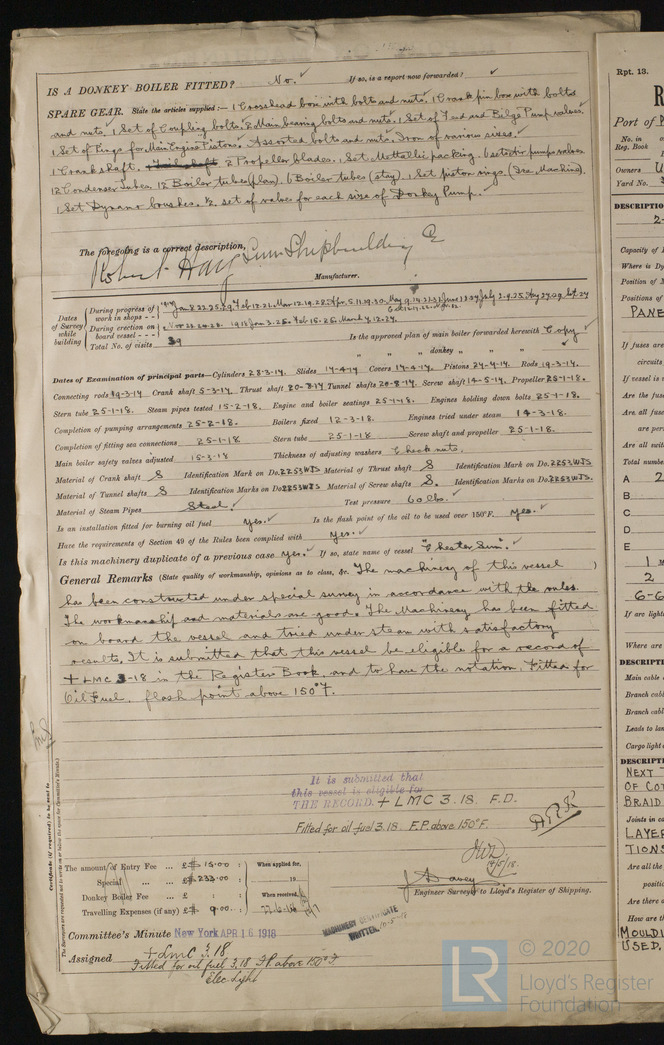 IS A DONKEY BOILER FITTED? No. ✓ If so, is a report now forwarded? ✓
SPARE GEAR. State the articles supplied:— 1 Crosshead box with bolts and nuts. 1 Crank pin box with bolts
and nuts. 1 Set of Coupling bolts. 2 Main bearing bolts and nuts. 1 Set of Feed and Bilge Pump valves.
1 Set of Rings for Main Engine Pistons. Assorted bolts and nuts. Iron of various sizes. ✓
1 Crankshaft. 2 Propeller blades. 1 Set Metallic packing. 6 pump valves
12 Condenser tubes. 12 Boiler tubes (plan). 6 Boiler tubes (stay). 1 Set piston rings.
1 Set Dynamo brushes. ½ set of valves for each size of Donkey Pump. ✓
The foregoing is a correct description,
Robert Haig Sun Shipbuilding Co
Manufacturer.
Dates of Survey while building
During progress of work in shops - -
During erection on board vessel - - -
Total No. of visits 39
Is the approved plan of main boiler forwarded herewith Copy ✓
" " " donkey " " "
Dates of Examination of principal parts—Cylinders 28-3-17. Slides 17-4-17 Covers 17-4-17. Pistons 24-4-17. Rods 19-3-17.
Connecting rods 19-3-17 Crank shaft 5-3-17. Thrust shaft 20-8-17 Tunnel shafts 20-8-17. Screw shaft 14-5-17. Propeller 25-1-18.
Stern tube 25-1-18. Steam pipes tested 15-2-18. Engine and boiler seatings 25-1-18. Engines holding down bolts 25-1-18.
Completion of pumping arrangements 25-2-18. Boilers fixed 12-3-18. Engines tried under steam 14-3-18.
Completion of fitting sea connections 25-1-18 Stern tube 25-1-18 Screw shaft and propeller 25-1-18.
Main boiler safety valves adjusted 15-3-18 Thickness of adjusting washers Check nuts.
Material of Crank shaft S Identification Mark on Do. 2253WJS Material of Thrust shaft S Identification Mark on Do. 2253WJS
Material of Tunnel shafts S Identification Marks on Do. 2253WJS Material of Screw shafts S. Identification Marks on Do. 2253WJS.
Material of Steam Pipes Steel ✓ Test pressure 60 lbs. ✓
Is an installation fitted for burning oil fuel yes. ✓ Is the flash point of the oil to be used over 150°F. yes. ✓
Have the requirements of Section 49 of the Rules been complied with yes. ✓
Is this machinery duplicate of a previous case yes. ✓ If so, state name of vessel "Chester Sun". ✓
General Remarks (State quality of workmanship, opinions as to class, &c. The machinery of this vessel )
has been constructed under special survey in accordance with the rules.
The workmanship and materials are good. The Machinery has been fitted
on board the vessel and tried under steam with satisfactory
results. It is submitted that this vessel be eligible for a record of
+ LMC 3-18 in the Registers Book, and to have the notation. Fitted for
Oil Fuel, flash point above 150°F.
Certificate (if required) to be sent to
The Surveyors are requested not to write on or below the space for Committee's Minute.
It is submitted that
this vessel is eligible for
THE RECORD. + LMC 3.18. F.D.
Fitted for oil fuel 3.18 F.P. above 150°F.
The amount of Entry Fee ... £ $ 15.00 : When applied for,
Special ... ... £ $ 233.00 : 19
Donkey Boiler Fee ... £ : : When received,
Travelling Expenses (if any) £ $ 9.00 :
Engineer Surveyor to Lloyd's Register of Shipping.
Committee's Minute New York APR 16 1918
MACHINERY CERTIFICATE
WRITTEN
Assigned + LMC 3.18
Fitted for oil fuel 3.18 F.P. above 150°F
Elec Light
Rpt. 13.
Port of
No. in
Reg. Book
Owners
Yard No.
DESCRIPTIO
Capacity of
Where is Dy
Position of
Positions of
PANE
If fuses are
circuits
If vessel is
Are the fuses
Are all fuse
are per
Are all swit
Total numbe
A 2
B
C
D
E
1 M
2
6-6
If are light
Where are
DESCRIPTI
Main cable
Branch cabl
Branch cabl
Leads to lam
Cargo light
DESCRIPTI
NEXT T
OF COT
BRAID.
Joints in ca
LAYER
TIONS
Are all the
positi
Are there
How are th
MOULDI
USED.
LR
© 2020
Lloyd's Register
Foundation